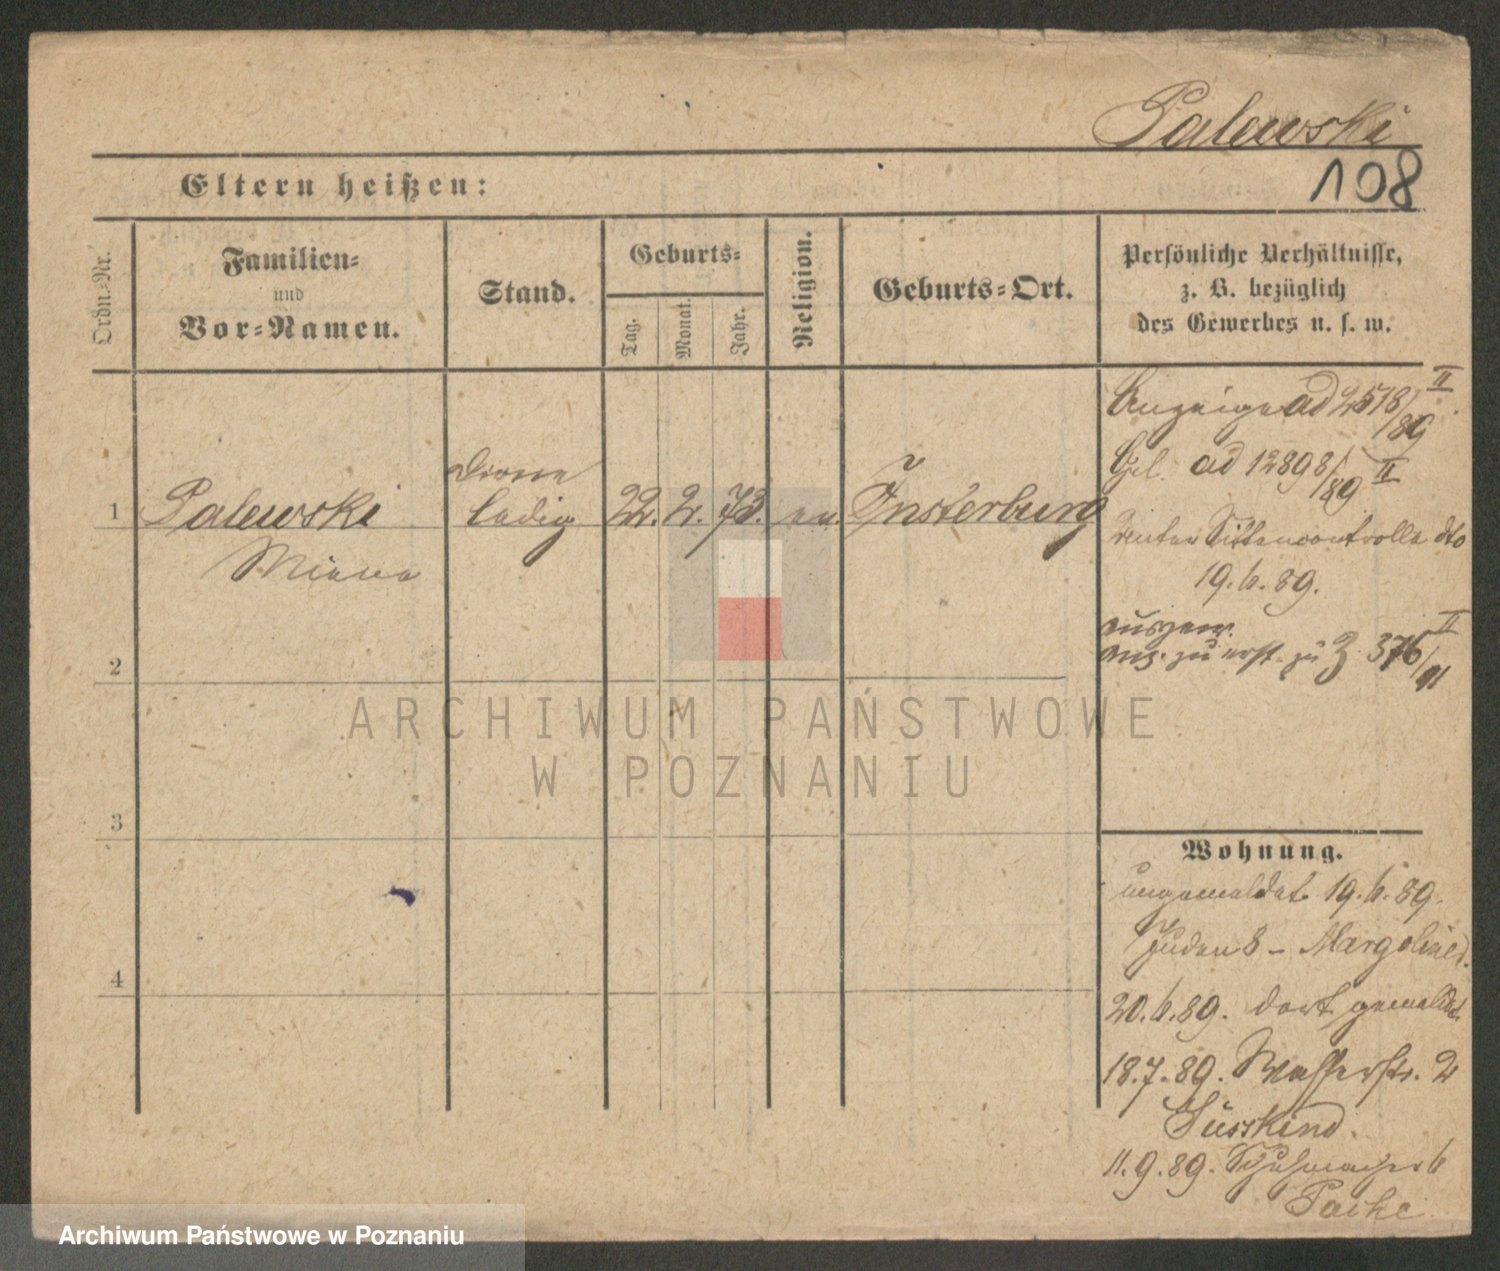 Palewski
108
Eltern heißen:
Ordn.-Nr.
Familien-
und
Vor-Namen.
Stand.
Geburts-
Tag.
Monat.
Jahr.
Religion.
Geburts-Ort.
Persönliche Verhältnisse,
z. B. bezüglich
des Gewerbes u. s. w.
Anzeige ad 2518/89 II
ad 12898/89 II
1 Palewski
ledig
22. 2. 73. ev. Insterburg
unter Sittencontrolle dto
19.6.89.
2
zu Z. 376/91 II
3
Wohnung.
angemeldet 19.6.89.
Juden 8 –
4
20.6.89. dort gemeldet
18.7.89. Wasserstr. 2
Süsskind.
11.9.89. Schuhmacher 6
ARCHIWUM PAŃSTWOWE
W POZNANIU
Archiwum Państwowe w Poznaniu